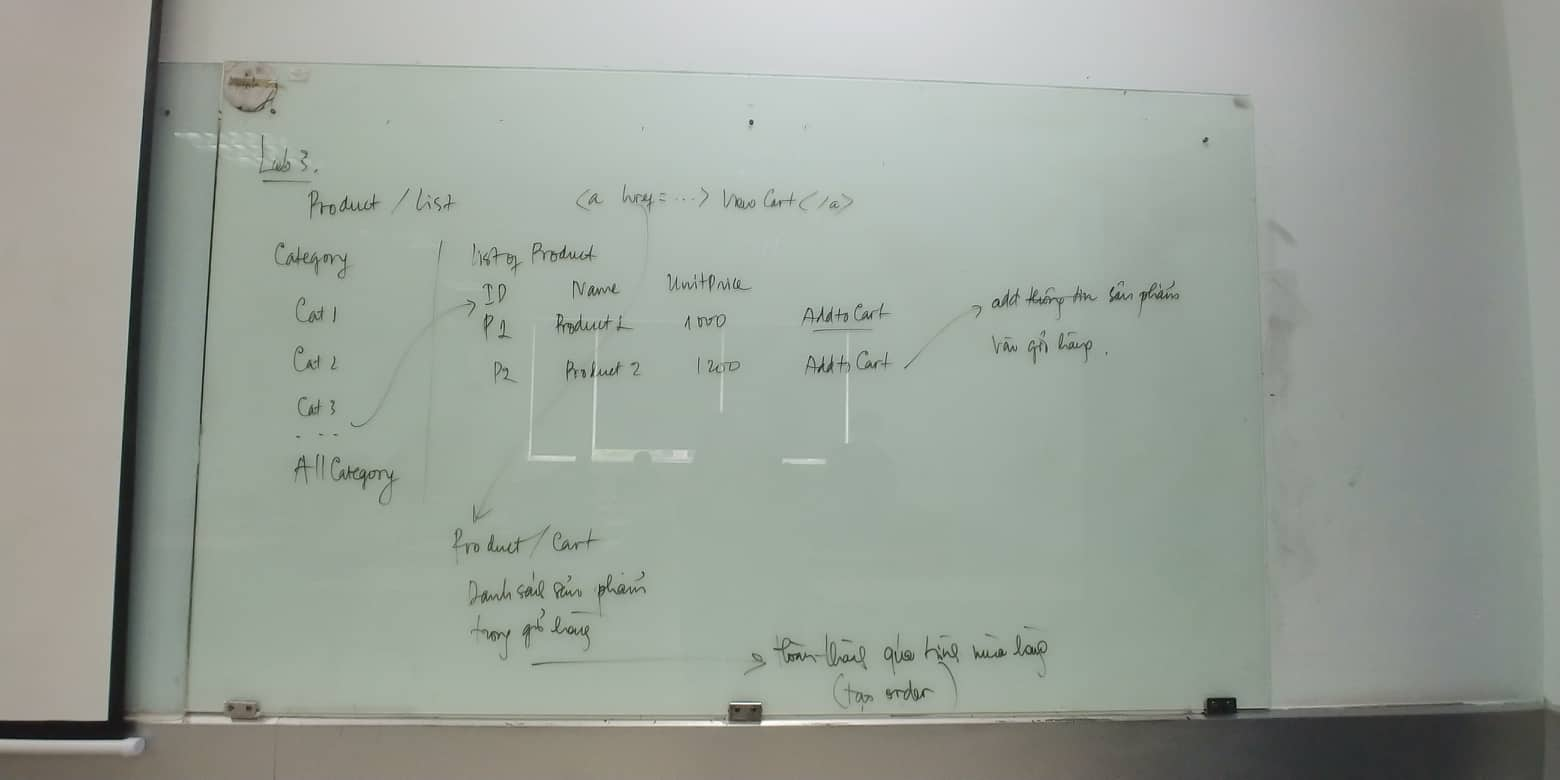 Lab 3.
Product / List
<a href=...> View Cart </a>
Category
Cat 1
Cat 2
Cat 3
. . .
All Category
List of Product
ID Name UnitPrice
P1 Product 1 1000 Add to Cart
P2 Product 2 1200 Add to Cart
add thông tin sản phẩm
vào giỏ hàng.
Product / Cart
Danh sách sản phẩm
trong giỏ hàng
hoàn thành quá trình mua hàng
(tạo order)